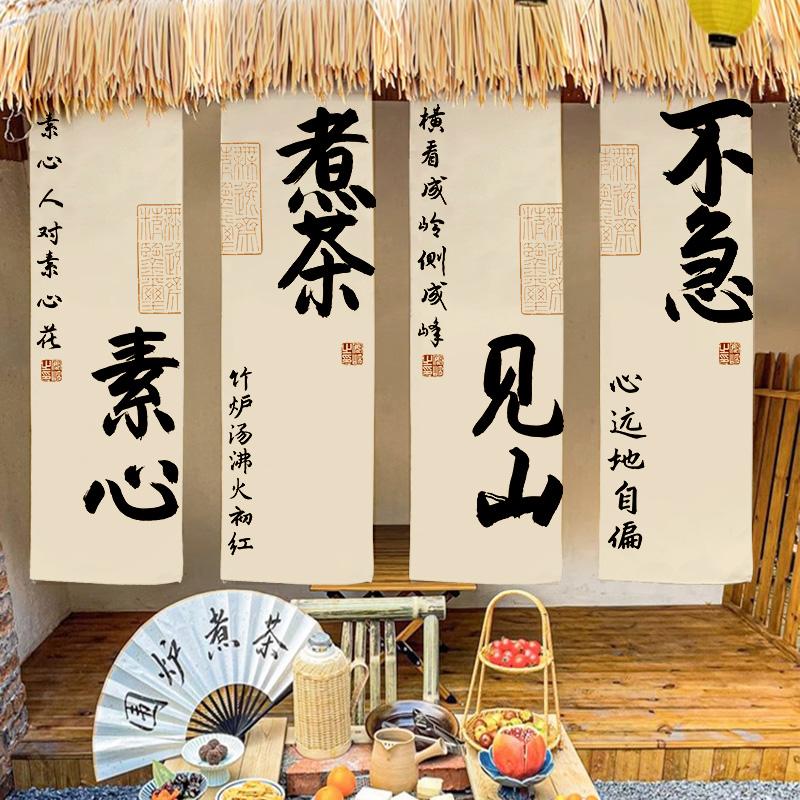 不急
心远地自偏
见山
横看成岭侧成峰
煮茶
竹炉汤沸火初红
素心
素心人对素心花
围炉煮茶